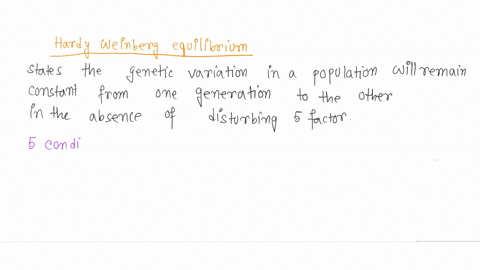 Hardy Weinberg equilibrium
states the genetic variation in a population will remain
constant from one generation to the other
in the absence of disturbing 5 factor.
5 condi